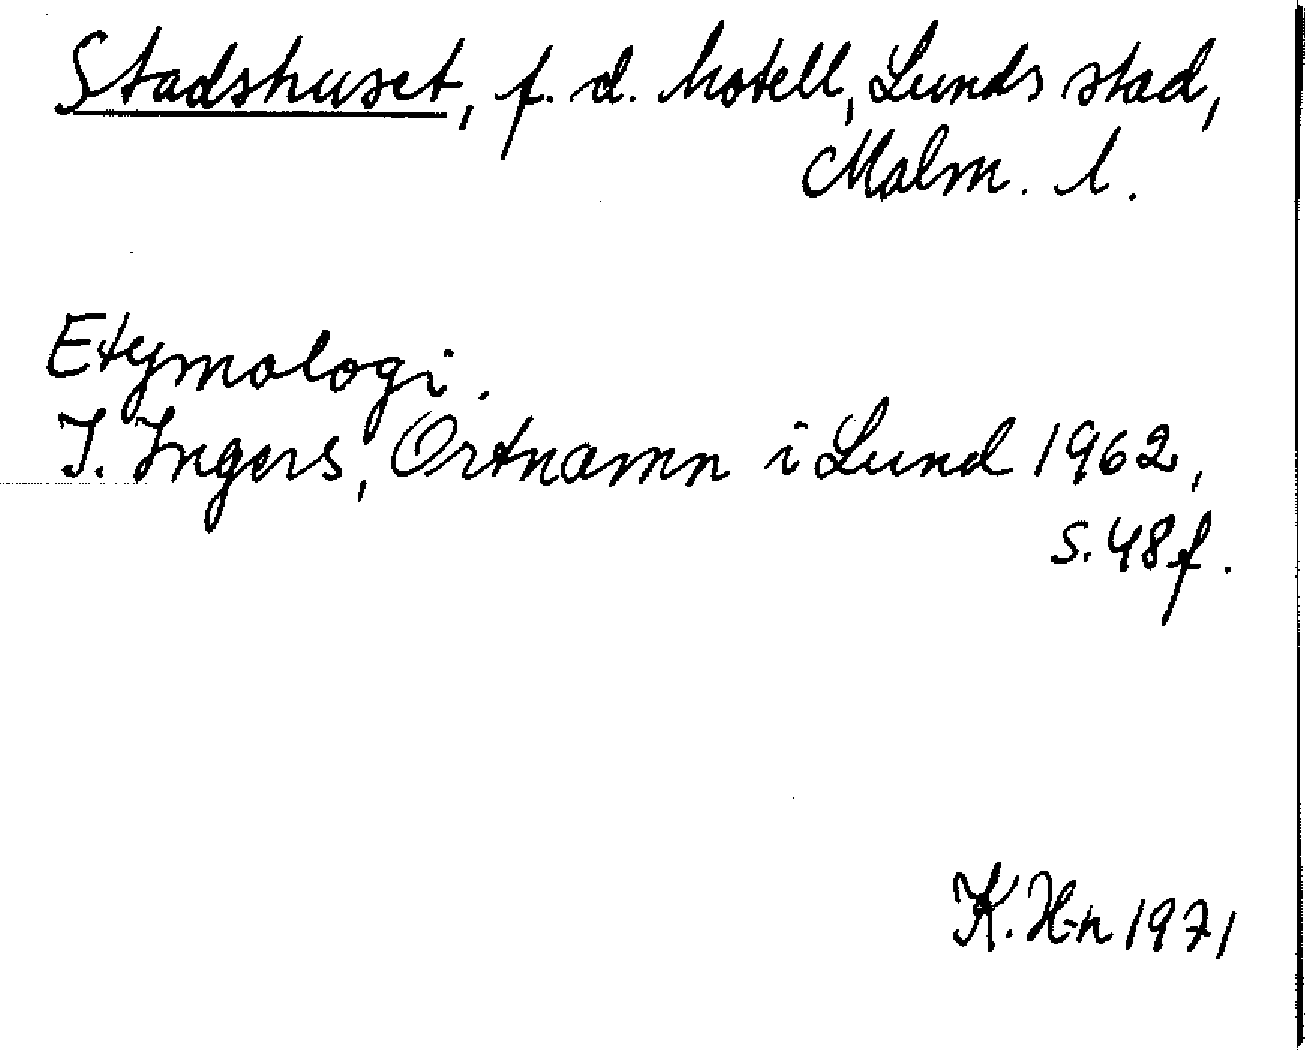 Stadshuset, f. d. hotell, Lunds stad,
Malm. l.
Etymologi.
I. Ingers, Ortnamn i Lund 1962,
s. 48 f.
K. H-n 1971